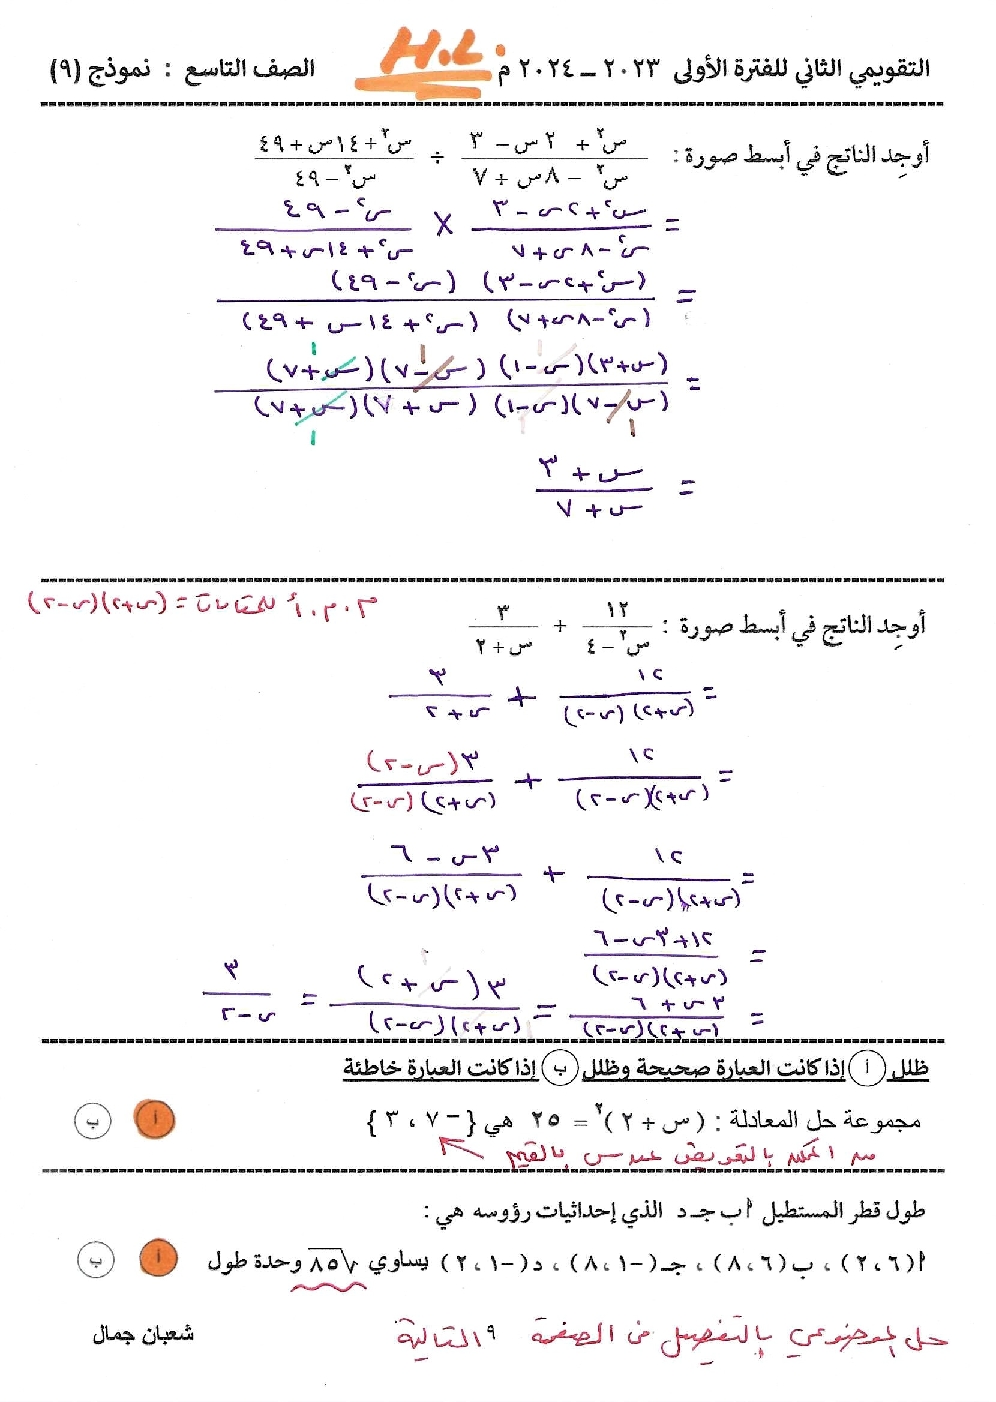 التقويمي الثاني للفترة الأولى ٢٠٢٣ – ٢٠٢٤ م H.L. الصف التاسع : نموذج (٩)
أوجِد الناتج في أبسط صورة : (س٢ + ٢س – ٣)/(س٢ – ٨س + ٧) ÷ (س٢ + ١٤س + ٤٩)/(س٢ – ٤٩)
= (س٢ + ٢س – ٣)/(س٢ – ٨س + ٧) × (س٢ – ٤٩)/(س٢ + ١٤س + ٤٩)
= (س٢ + ٢س – ٣) (س٢ – ٤٩) / (س٢ – ٨س + ٧) (س٢ + ١٤س + ٤٩)
= (س + ٣)(س – ١) (س – ٧)(س + ٧) / (س – ٧)(س – ١) (س + ٧)(س + ٧)
= (س + ٣)/(س + ٧)
م.م.أ للمقامات = (س + ٢)(س – ٢)
أوجِد الناتج في أبسط صورة : ١٢/(س٢ – ٤) + ٣/(س + ٢)
= ١٢/(س + ٢)(س – ٢) + ٣/(س + ٢)
= ١٢/(س + ٢)(س – ٢) + ٣(س – ٢)/(س + ٢)(س – ٢)
= ١٢/(س + ٢)(س – ٢) + (٣س – ٦)/(س + ٢)(س – ٢)
= (١٢ + ٣س – ٦)/(س + ٢)(س – ٢)
= (٣س + ٦)/(س + ٢)(س – ٢) = ٣(س + ٢)/(س + ٢)(س – ٢) = ٣/(س – ٢)
ظلل أ إذا كانت العبارة صحيحة وظلل ب إذا كانت العبارة خاطئة
مجموعة حل المعادلة : (س + ٢)٢ = ٢٥ هي {– ٧ ، ٣} أ ب
بالتعويض عن س بالقيم
طول قطر المستطيل أ ب جـ د الذي إحداثيات رؤوسه هي :
أ(٦ ، ٢) ، ب(٦ ، ٨) ، جـ(–١ ، ٨) ، د(–١ ، ٢) يساوي √٨٥ وحدة طول أ ب
حل الموضوعي بالتفصيل في الصفحة التالية ٩ شعبان جمال